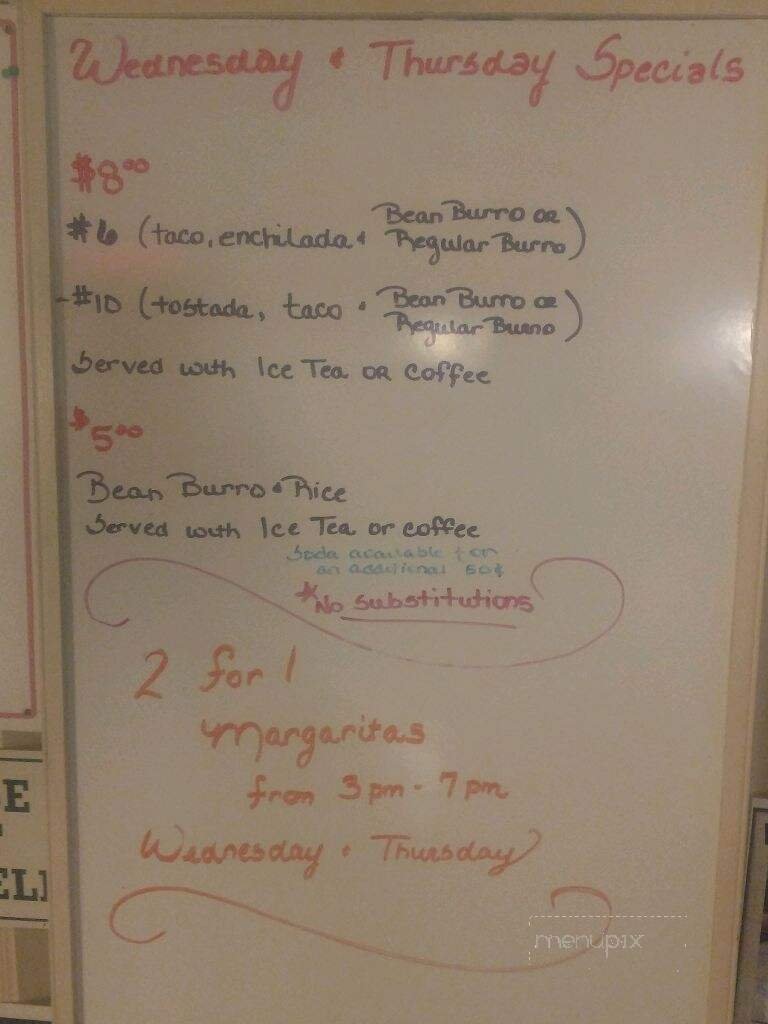 Wednesday & Thursday Specials
$8.00
#6 (taco, enchilada & Bean Burro or Regular Burro)
-#10 (tostada, taco & Bean Burro or Regular Burro)
Served with Ice Tea OR coffee
$5.00
Bean Burro & Rice
Served with Ice Tea or coffee
Soda available for
an additional 50¢
*No substitutions
2 for 1
Margaritas
from 3pm - 7pm
Wednesday & Thursday
menupix